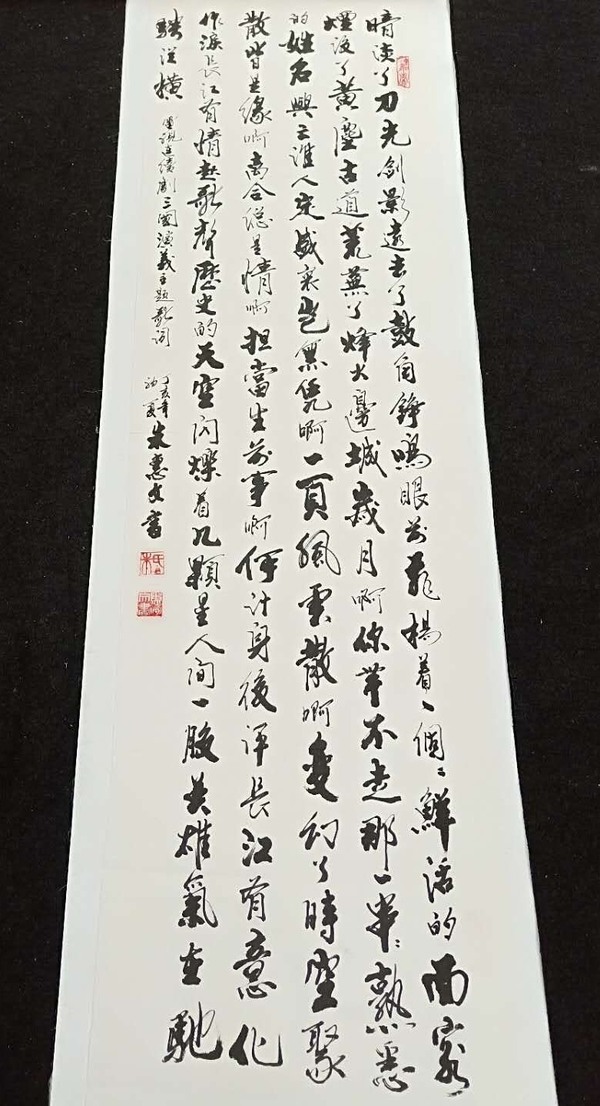 暗淡了刀光剑影遠去了鼓角錚鳴眼前飛揚着一個々鮮活的面容
煙没了黄塵古道荒蕪了烽火邊城歲月啊你帶不走那一串々熟悉
的姓名興亡誰人定盛衰豈無凭啊一頁風雲散啊變幻了時空聚
散皆是缘啊离合總是情啊担當生前事啊何計身後评長江有意化
作淚長江有情起歌聲歷史的天空闪爍着几顆星人间一股英雄氣在馳
騁從横
電視連續劇三國演義主題歌词
丁亥年
初夏
朱惠文書